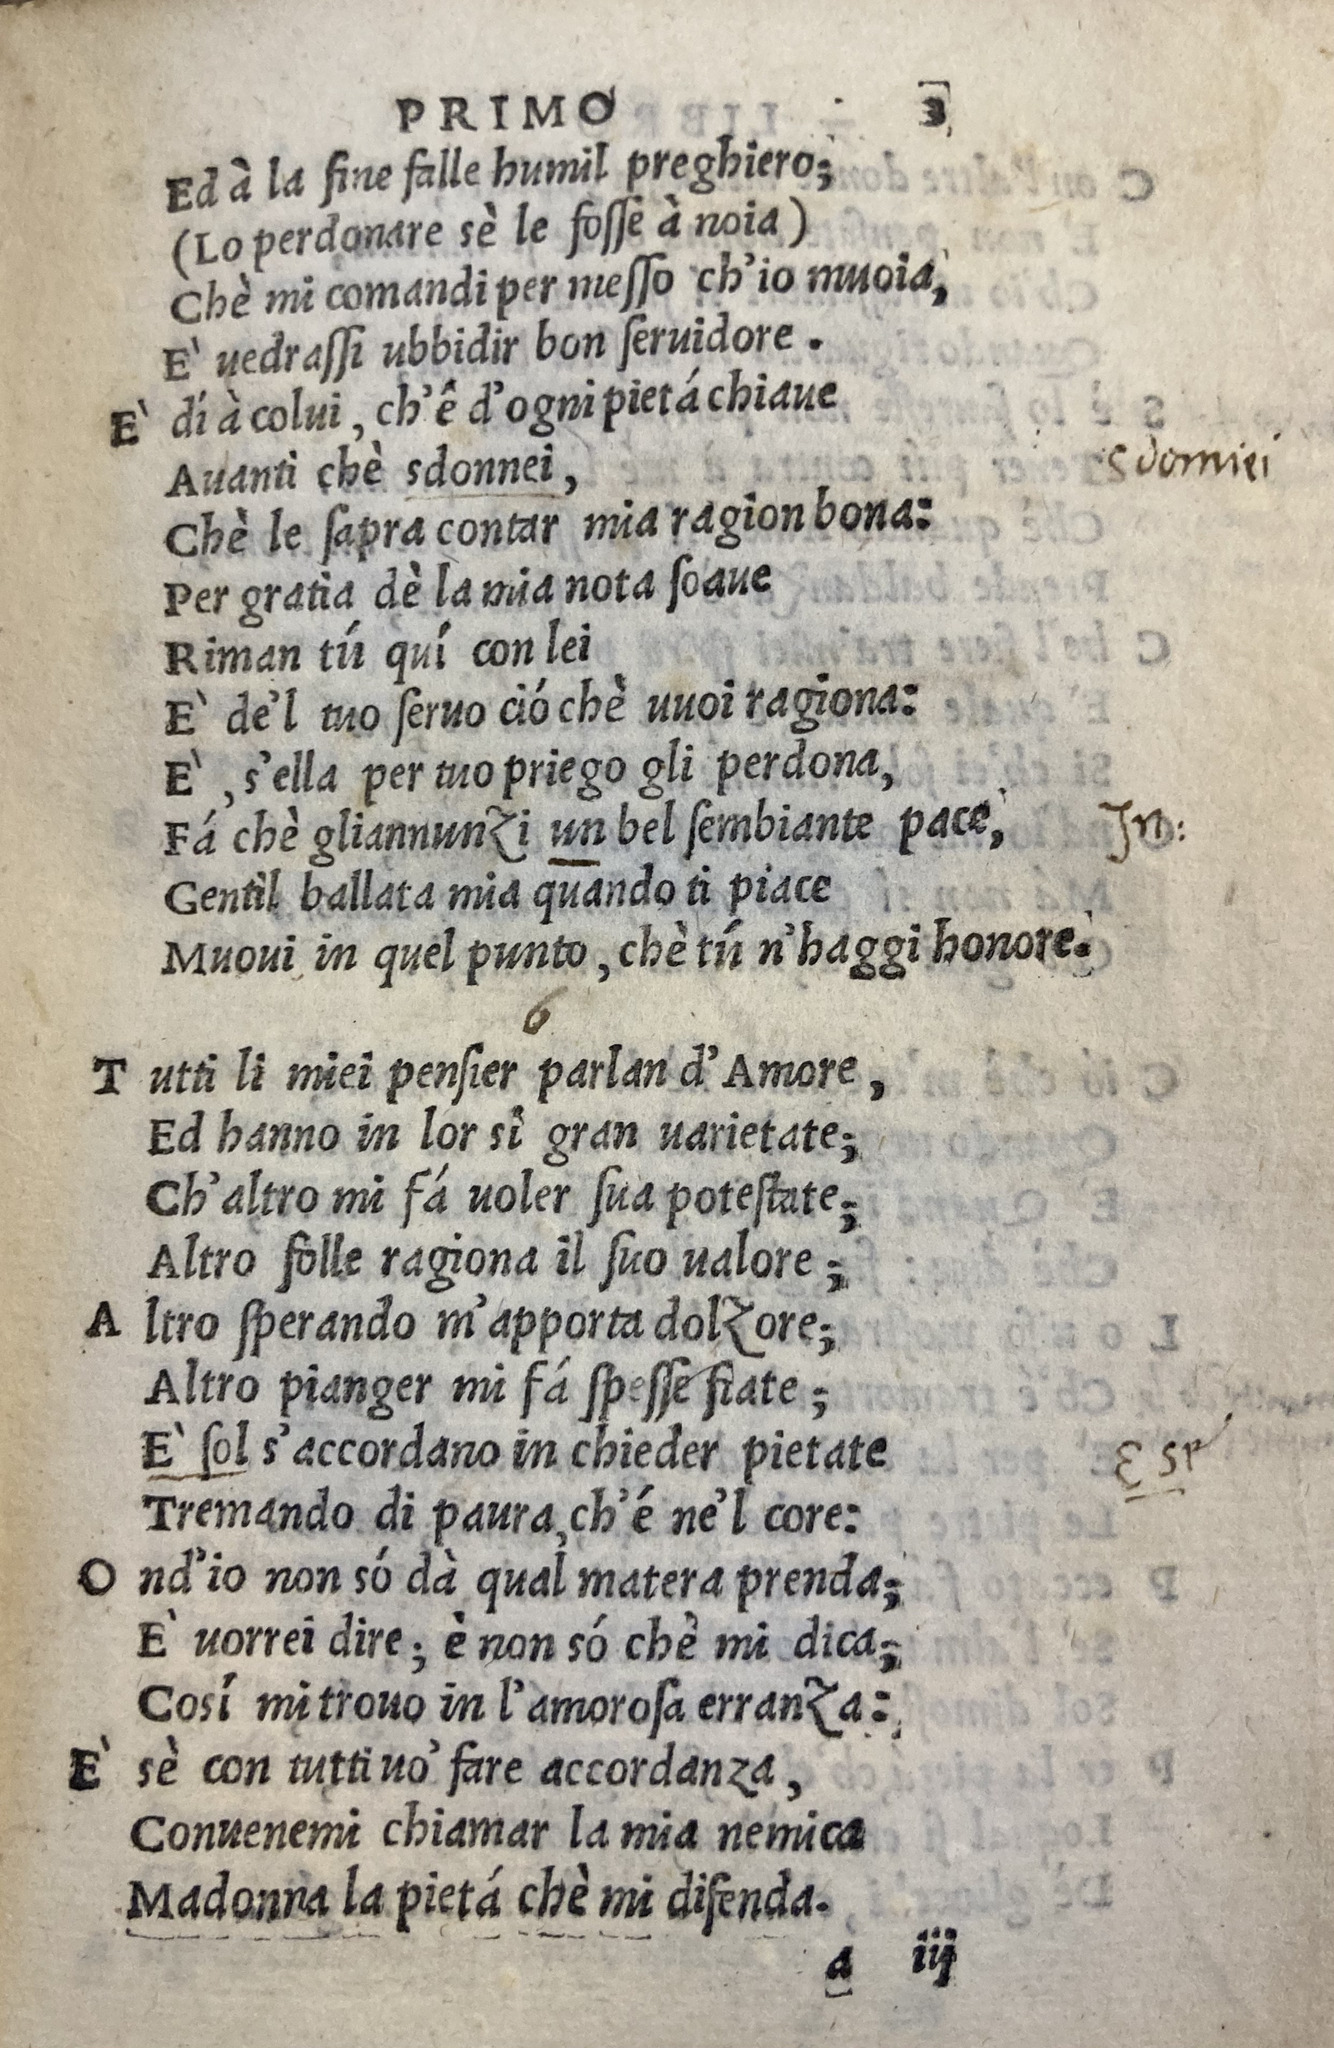 PRIMO 3
Ed à la fine falle humil preghiero;
(Lo perdonare sè le fosse à noia)
Chè mi comandi per messo ch'io muoia,
E' uedrassi ubbidir bon seruidore.
E' dí à colui, ch'ê d'ogni pietá chiaue
Auanti chè sdonnei,
sdonnei
Chè le sapra contar mia ragion bona:
Per gratia dè la mia nota soaue
Riman tú quí con lei
E' de'l tuo seruo ció chè uuoi ragiona:
E', s'ella per tuo priego gli perdona,
Fá chè gliannunzi un bel sembiante pace,
In:
Gentil ballata mia quando ti piace
Muoui in quel punto, chè tú n'haggi honore.
6
Tutti li miei pensier parlan d'Amore,
Ed hanno in lor sî gran uarietate;
Ch'altro mi fá uoler sua potestate;
Altro folle ragiona il suo ualore;
Altro sperando m'apporta dolzore;
Altro pianger mi fá spesse fiate;
E' sol s'accordano in chieder pietate
Tremando di paura, ch'é ne'l core:
Ond'io non só dà qual matera prenda;
E' uorrei dire; è non só chè mi dica;
Cosí mi trouo in l'amorosa erranza:
E' sè con tutti uo' fare accordanza,
Conuenemi chiamar la mia nemica
Madonna la pietá chè mi difenda.
a iij